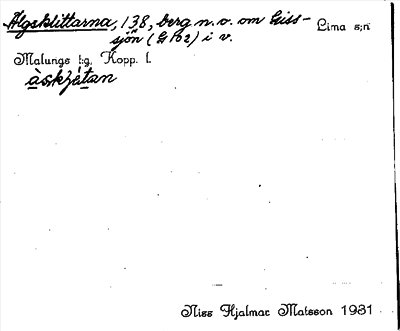 Älgsklittarna, 138, berg n.o. om Giss-
sjön (G 102) i v.
Lima s:n
Malungs t:g. Kopp. l.
Niss Hjalmar Matsson 1931